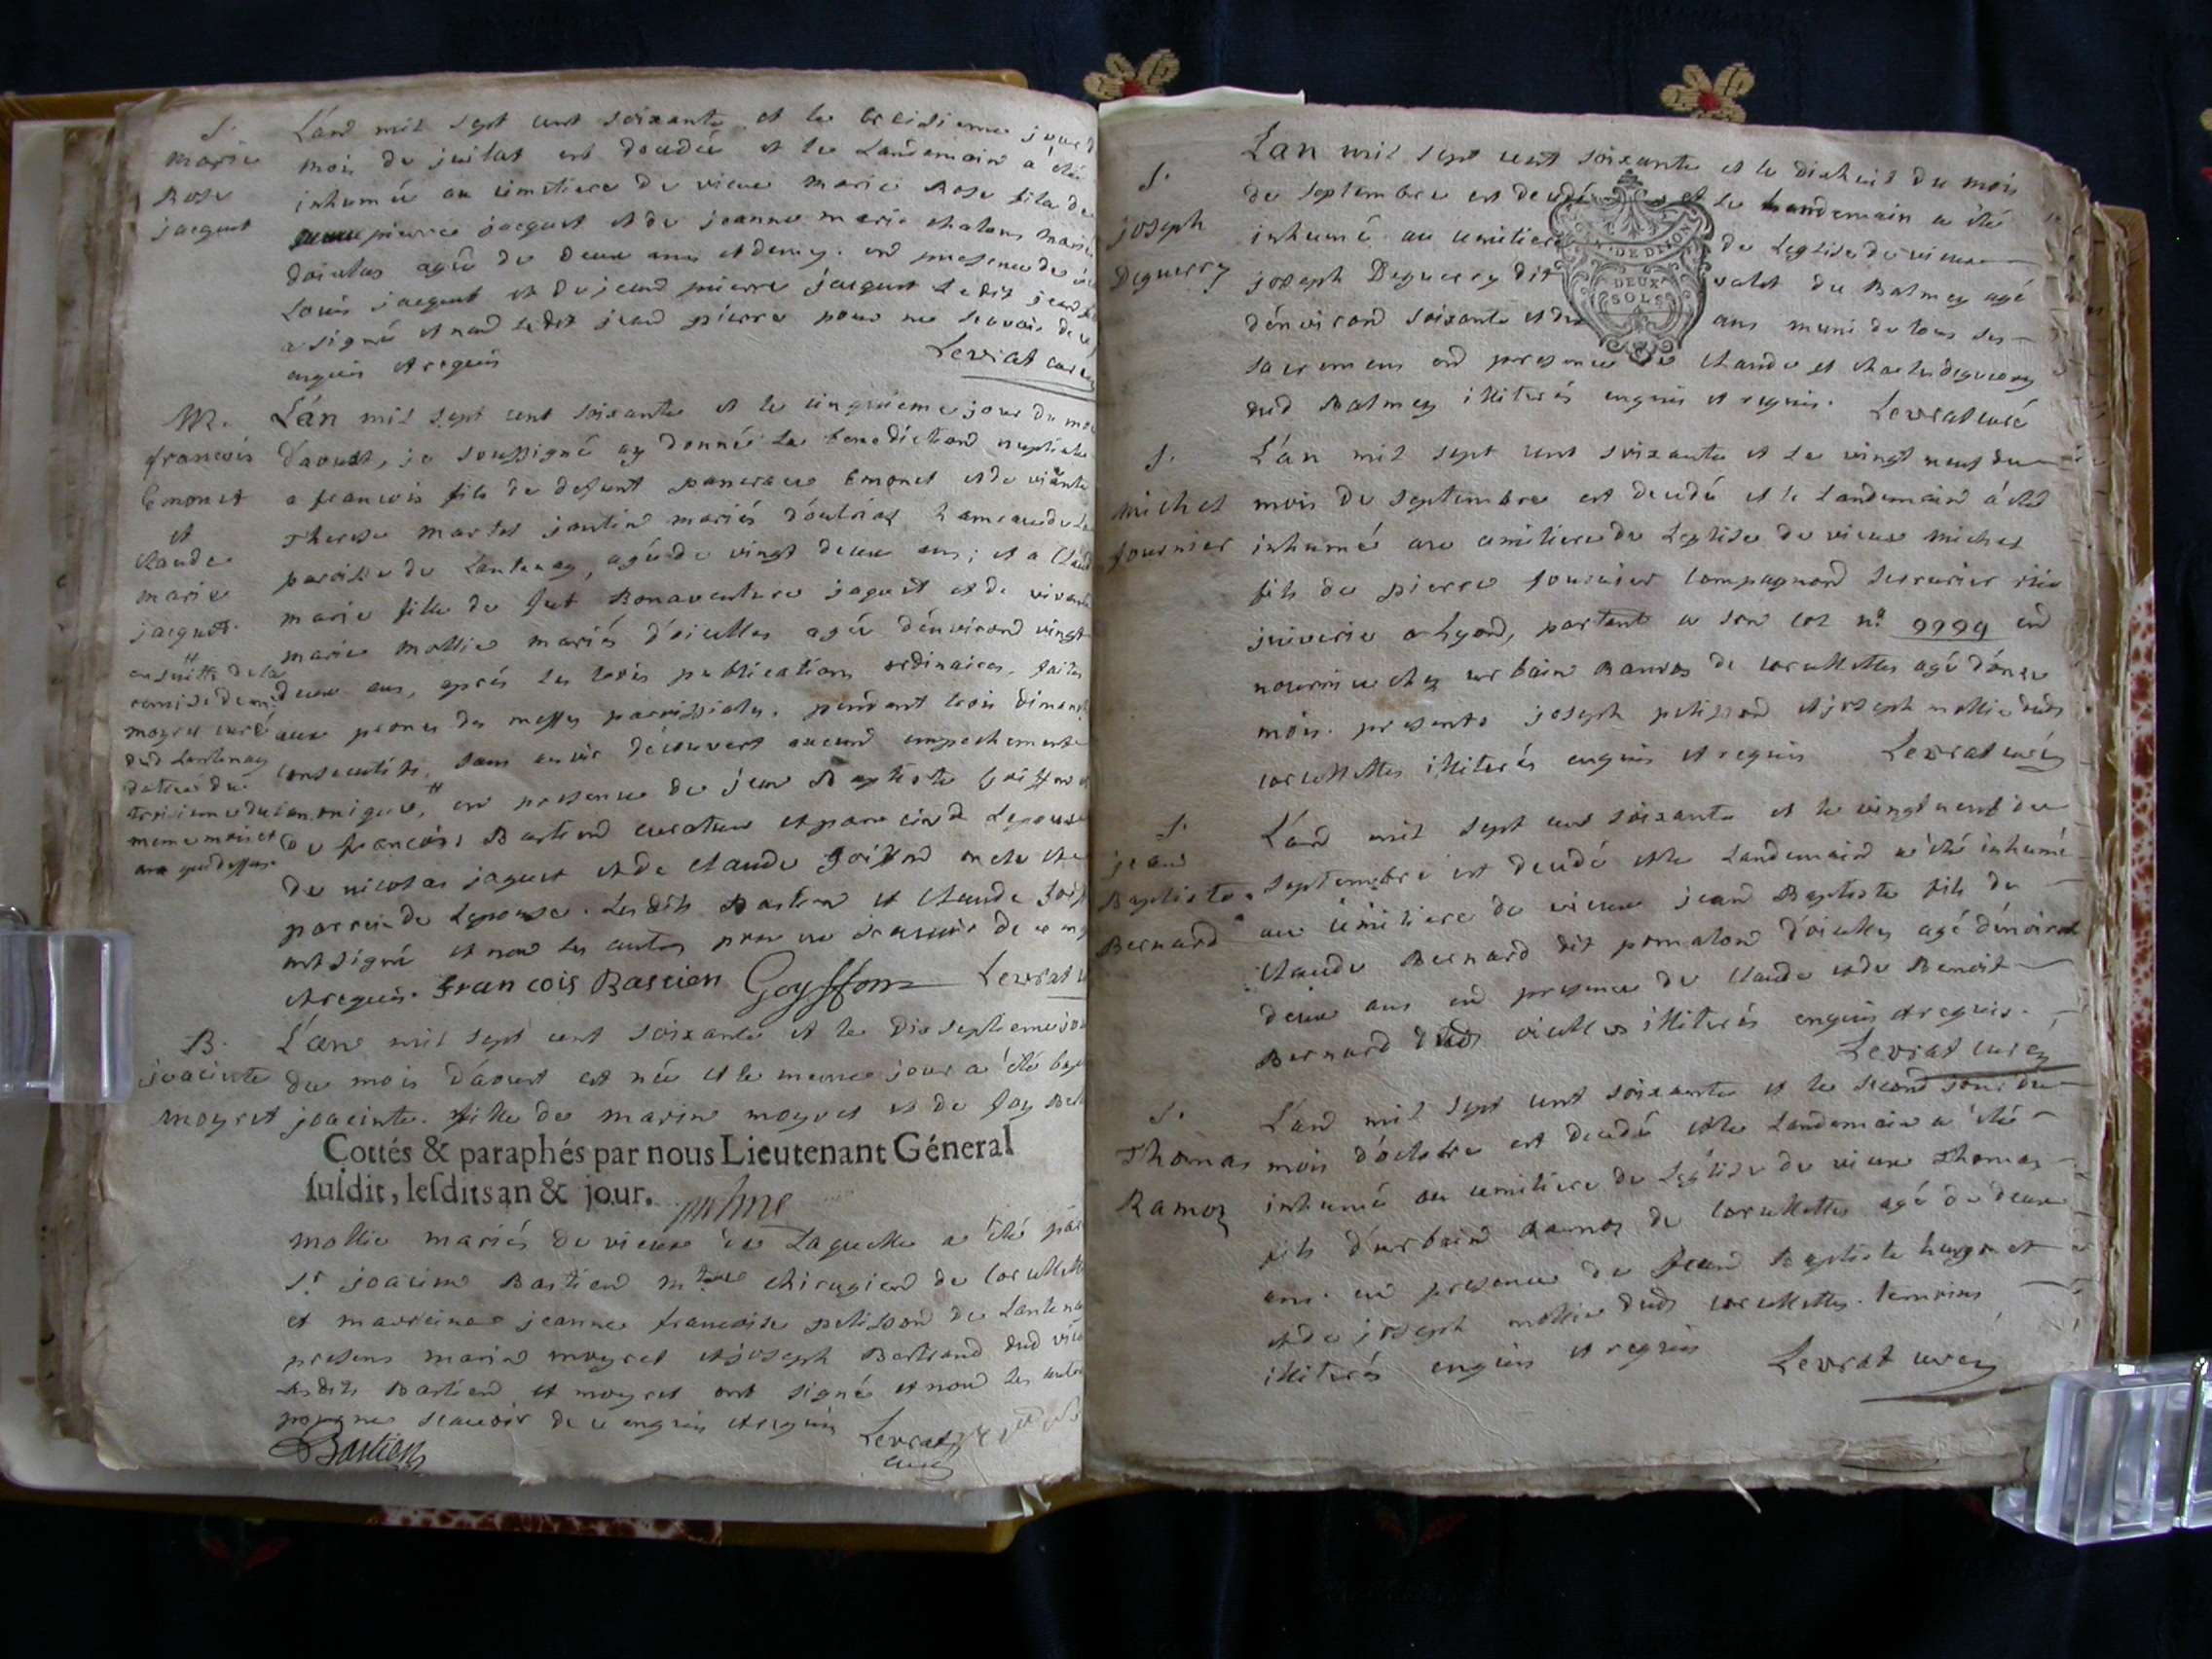 S.
Marie
Rose
jacquet
L'an mil sept cent soixante et le treisieme jour d
mois de juillet est decedée et le landemain a été
inhumée au cimetiere de vieux marie Rose fille de
pierre jacquet et de jeanne marie chatons mariés
agée de deux ans et demy. en presence de
Louis jacquet et de jean pierre jacquet le dit jean
a signé et non ledit jean pierre pour ne scavoir de ce
enquis et requis
Levrat curé
M.
francois
Emonet
et
claude
marie
jacquet.
L'an mil sept cent soixante et le cinquieme jour du moi
d'aoust, je soussigné ay donnée la benediction nuptiale
a francois fils de defunt pancrace Emonet et de vivante
Therese martel jantin mariés hameau de la
paroisse de Lantenay, agé de vingt deux ans; et a Claud
marie fille de feut Bonaventure jaquet et de vivante
marie mollie mariés d'oicelles agée d'environ vingt
deux ans, aprés les trois publications ordinaires, faites
aux prones des messes parroissiales, pendant trois dimanch
consecutifs, sans avoir découvert aucun empechement
canonique, # en presence de jean Baptiste
de francois Bastien curateur et parrein de Lepouse
de nicolas jaquet et de claude Goiffon oncle et
parrein de Lepouse. Lesdits Bastien et claude Goiff
ont signé et non les autres pour ne scavoir de ce enq
et requis. Francois Bastien Goyffon Levrat
#
en suitte de la
remise de mr
moyret curé
dud Lantenay
dattée du
troisieme du
meme mois et
an que dessus
B.
joacinte
moyret
L'an mil sept cent soixante et le dix septieme jou
du mois d'aoust est née et le meme jour a été bap
joacinte. fille de marin moyret et de
Cottés & paraphés par nous Lieutenant Géneral
susdit, lesdits an & jour.
mollie mariés de vieux de Laquelle a été par
Sr joacim Bastien mtre chirugien de Corcellett
et marreine jeanne francoise pelisson de Lantena
presens marin moyret et joseph Bertrand dud vieu
Lesdits Bastien et moyret ont signé et non les autre
pour ne scavoir de ce enquis et requis Levrat
curé
Bastien
S.
joseph
Deguerry
L'an mil sept cent soixante et le dixhuit du mois
de septembre est decedé et le Landemain a été
inhumé au cimetiere de Leglise de vieux
GEN. DE DIJON
DEUX
SOLS
joseph Deguerry dit valet du Balmey agé
d'environ soixante et dix ans muni de tous ses
sacremens en presence de claude et charle deguerry
dud Balmey illiterés enquis et requis. Levrat curé
S.
michel
fournier
L'an mil sept cent soixante et le vingt neuf du
mois de septembre est decedé et le Landemain a été
inhumé au cimitiere de Leglise de vieux michel
fils de pierre fournier compagnon serrurier rüe
juiverie a Lyon, portant a son col no. 9994 en
nourrice chez urbain Ramoz de corcellettes agé d'onze
mois. presents joseph pelisson et joseph mollie dud
corcellettes illiterés enquis et requis Levrat curé
S.
jean
Baptiste
Bernard
L'an mil sept cent soixante et le vingt neuf de
septembre est decedé et le Landemain a été inhumé
au cimitiere de vieux jean Baptiste fils de
claude Bernard dit pomalon d'oicelles agé d'environ
deux ans en presence de claude et de Benoit
Bernard dud oicelles illiterés enquis et requis.
Levrat curé
S.
Thomas
Ramoz
L'an mil sept cent soixante et le second jour du
mois d'octobre est decedé et le Landemain a été
inhumé au cemitiere de Leglise de vieux Thomas
fils d'urbain Ramoz de corcellettes agé de deux
ans. en presence de jean Baptiste hugonet
et de joseph mollie dud corcellettes. temoins
illiterés enquis et requis Levrat curé